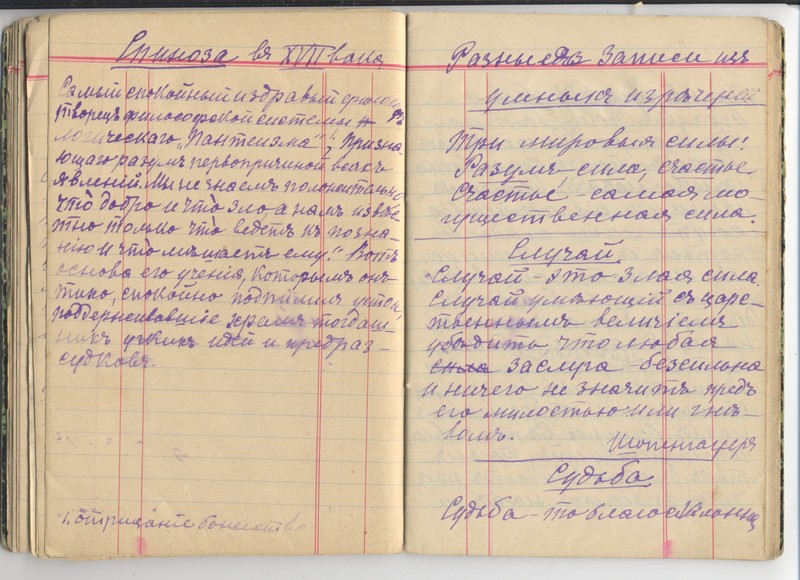 Спиноза въ XVII вѣка
Самый спокойный и здравый филосо
творецъ философской системы
логическаго „Пантеизма“, Призна-
ющаго разумъ первопричиной всѣхъ
явленій. Мы не знаемъ положительно
что добро и что зло, а намъ извѣс
тно только что ведетъ къ позна-
нію и что мѣшаетъ ему!! Вотъ
основа его ученія, которымъ онъ
тихо, спокойно подпилилъ
поддерживавшіе тогдаш
нихъ узкихъ идей и предраз-
судковъ.
1. отрицаніе божества
Разныя Записи изъ
умныхъ изрѣченій
Три міровыя силы!
Разумъ - сила, счастье.
Счастье - самая мо-
гущественная сила.
Случай
Случай - это злая сила.
Случай умѣющій съ царс-
твеннымъ величіемъ
убѣдить что любая
сила заслуга - безсильна
и ничего не значитъ предъ
его милостью или гнѣ-
вомъ.
Шопенгауеръ
Судьба
Судьба - то